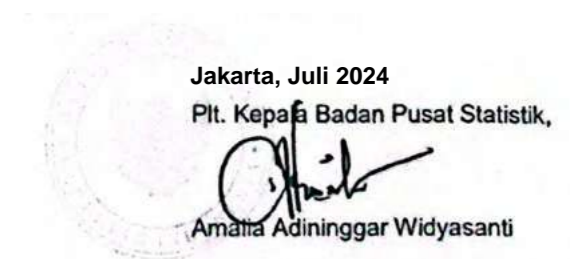 Jakarta, Juli 2024
Plt. Kepala Badan Pusat Statistik,
Amalia Adininggar Widyasanti